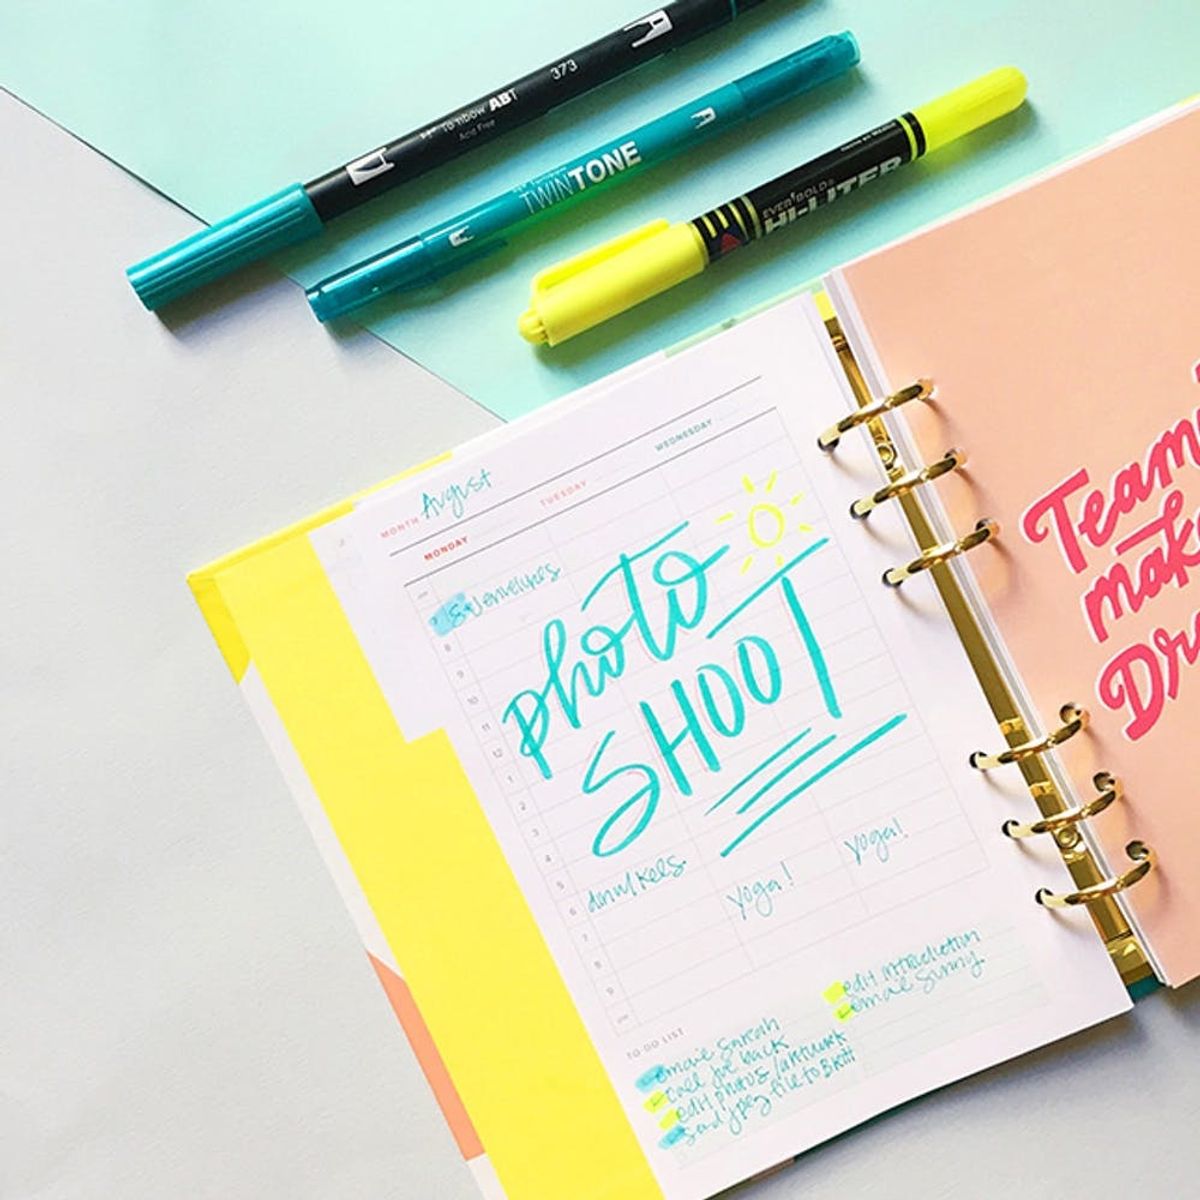 373
Tombow ABT
Acid Free
Tombow TWINTONE
EVER BOLD
HI-LITER
MONTH August
MONDAY TUESDAY WEDNESDAY
envelopes
photo
SHOOT
8
9
10
11
12
1
2
3
4
5
6
7
8
9
yoga!
yoga!
TO-DO LIST
email sarah
call joe back
edit photos / artwork
send jpeg file to Britt
edit introduction
email sunny
Team
mak
Dr